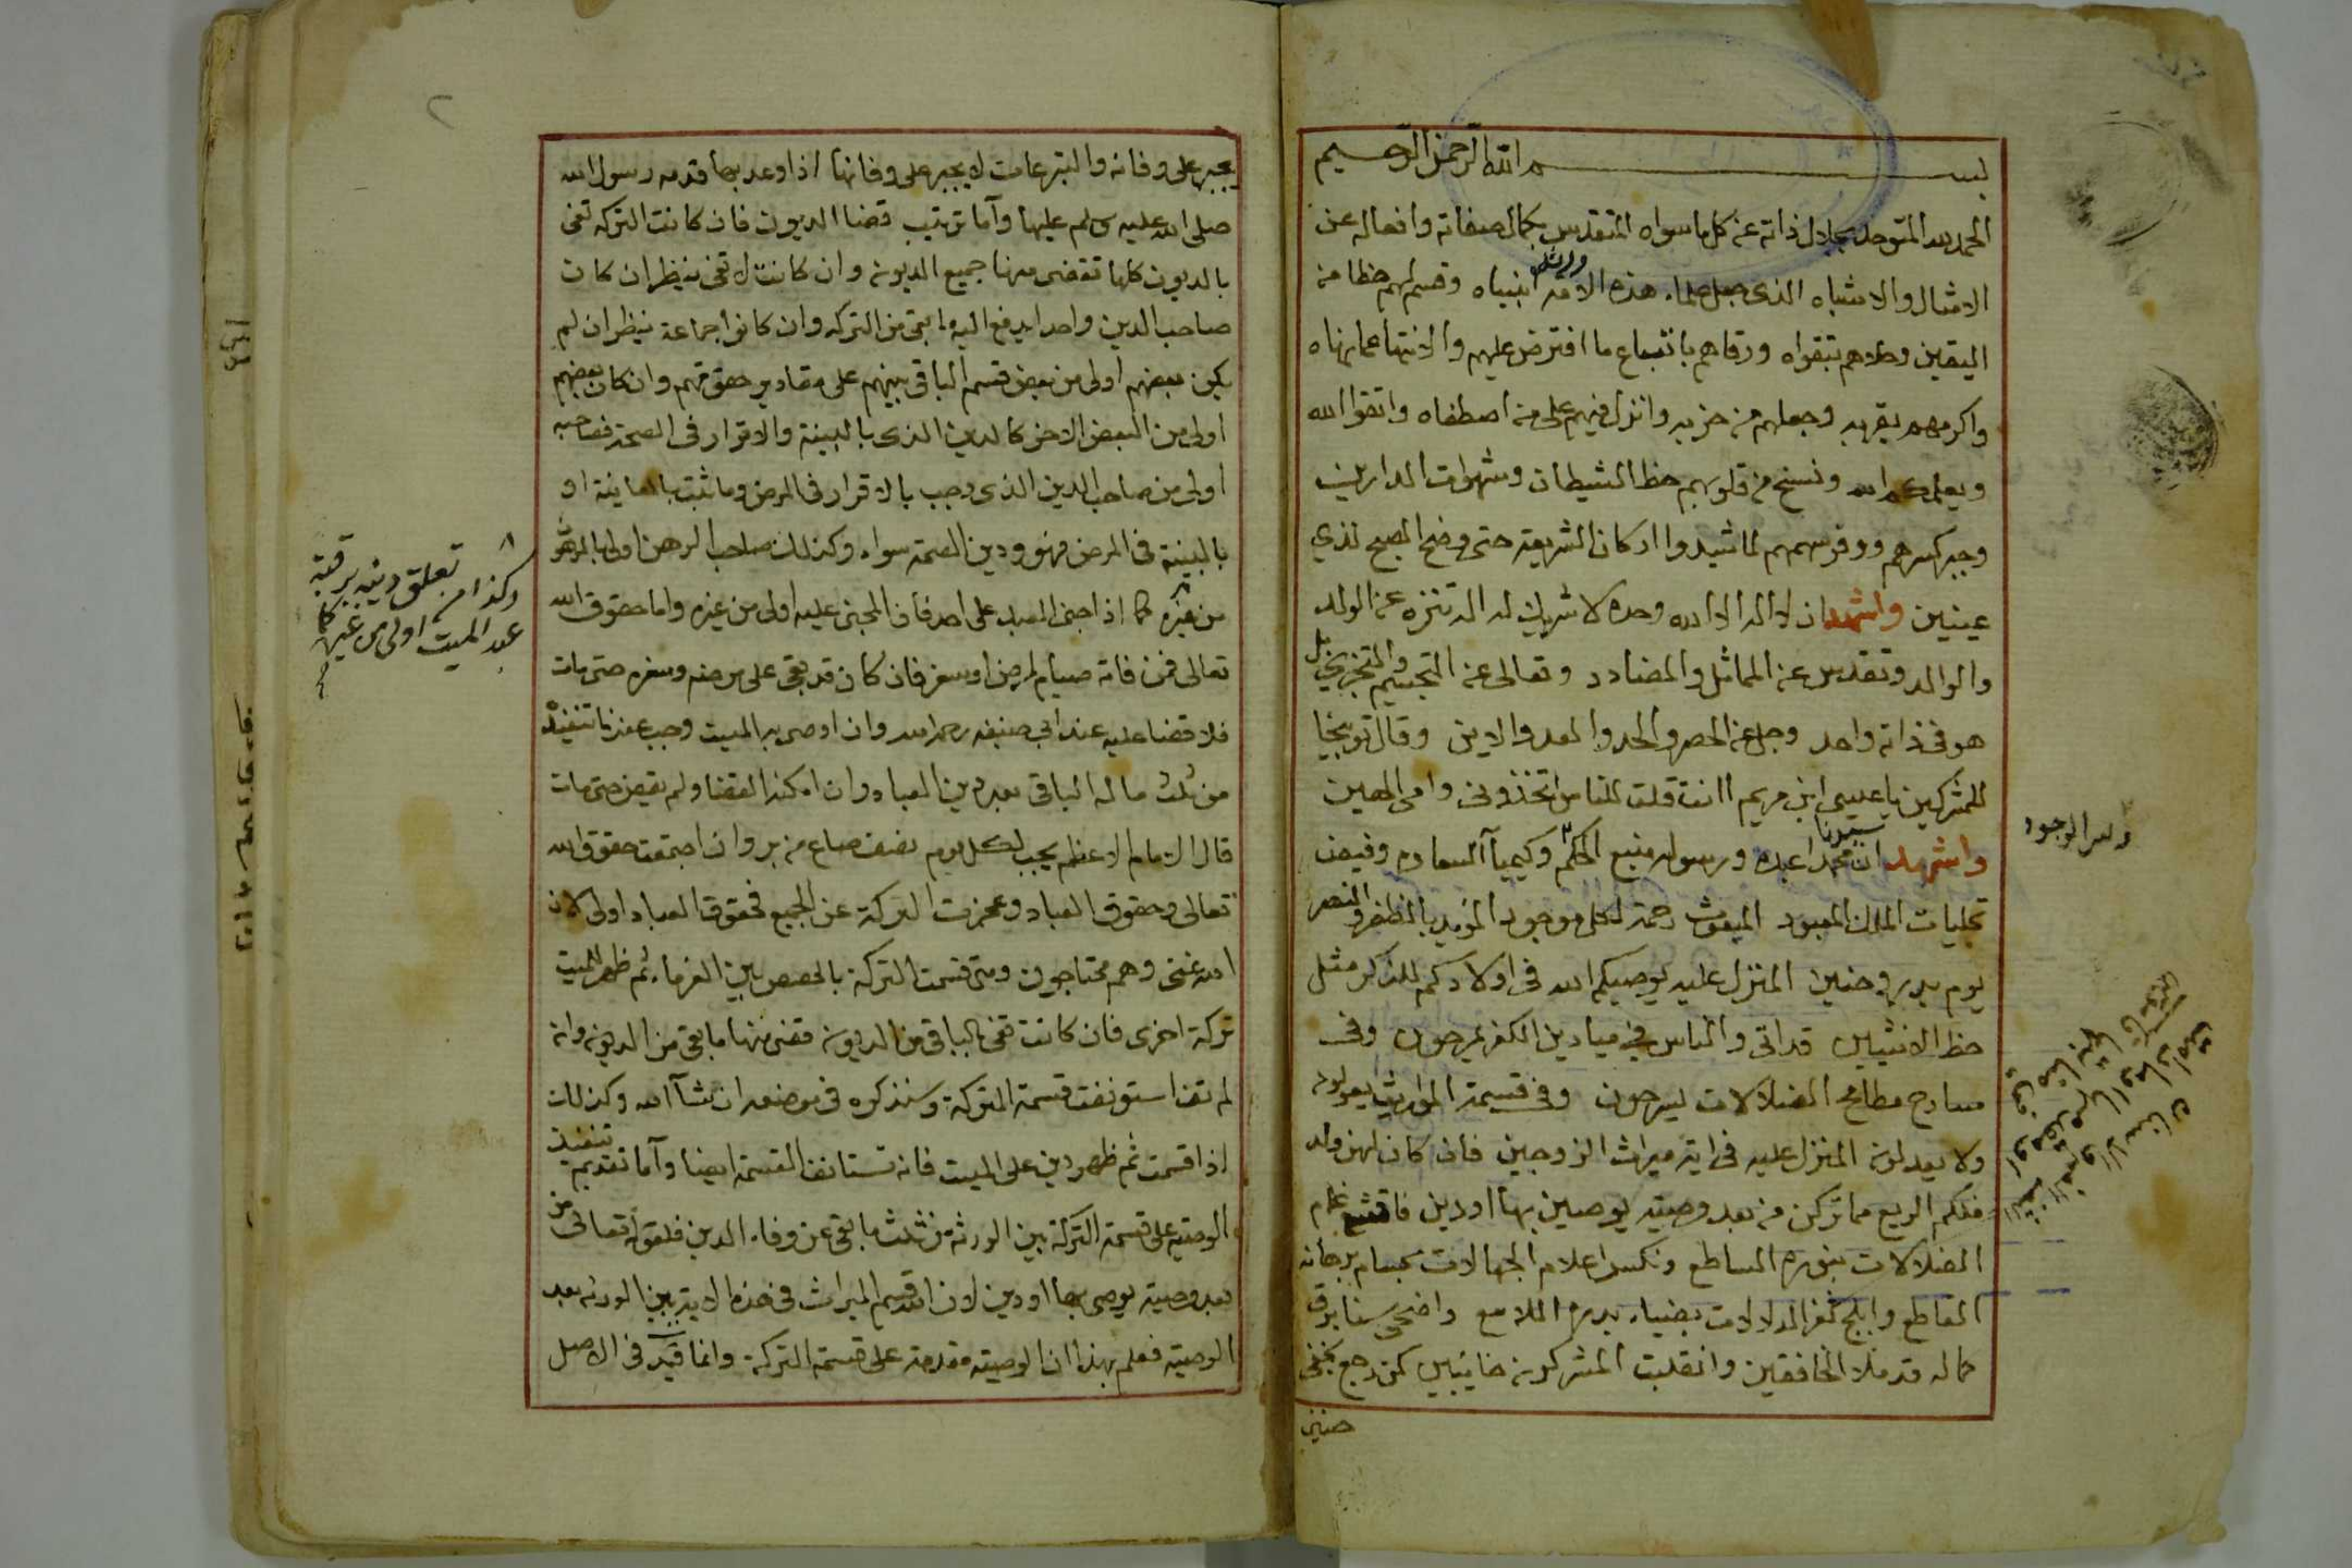 بسم الله الرحمن الرحيم
الحمد لله المتوحد بجلال ذاته عن كل ما سواه المتقدس بكمال صفاته وافعاله عن
الامثال والاشباه الذى جعل علماء هذه الامة انبياه وقسم لهم حظا من
اليقين وحلاهم بتقواه ورقاهم باتباع ما افترض عليهم والانتها عما نهاه
واكرمهم بقربه وجعلهم من حزبه وانزل فيهم على من اصطفاه واتقوا الله
ويعلمكم الله ونسخ من قلوبهم حظ الشيطان وشهوات الدارين
وجبر كسرهم ووفر سهمهم لما شيدوا اركان الشريعة حتى وضح الصبح لذي
عينين واشهد ان لا اله الا الله وحده لا شريك له اله تنزه عن الولد
والوالد وتقدس عن المماثل والمضادد وتعالى عن التجسيم والتجزي بل
هو فى ذاته واحد وجل عن الحصر والحد والعد والاين وقال توبيخا
للمشركين يا عيسى ابن مريم اانت قلت للناس اتخذونى وامى الهين
واشهد ان سيدنا محمدا عبده ورسوله منبع الحكم وكيميآ السعادة وفيض
تجليات الملك المعبود المبعوث رحمة لكل موجود المؤيد بالظفر والنصر
يوم بدر وحنين المنزل عليه يوصيكم الله فى اولادكم للذكر مثل
حظ الانثيين قد اتى والناس في ميادين الكفر يمرحون وفى
مسارح مطامح الضلالات يسرحون وفى قسيمة المواريث يعولون
ولا يعدلون المنزل عليه فى اية ميراث الزوجين فان كان لهن ولد
فلكم الربع مما تركن من بعد وصية يوصين بها او دين فاقشع غمام
الضلالات بنوره الساطع ونكس اعلام الجهالات بحسام برهانه
القاطع وابلج ثغر الدلالات بضياء بدره اللامع واضحى سنا برق
كماله قد ملا الخافقين وانقلبت المشركون خايبين كمن رجع بخفى
حنين
وسر الوجود
٢
يجبر على وفائه والتبرعات لا يجبر على وفائها اذا وعد بها قدمه رسول الله
صلى الله عليه وسلم عليها وآما ترتيب قضا الديون فان كانت التركه تفى
بالديون كلها تقضى منها جميع الديون وان كانت لا تفى ينظر ان كان
صاحب الدين واحدا يدفع اليه ما بقى من التركه وان كانوا جماعة ينظر ان لم
يكن بعضهم اولى من بعض قسم الباقى بينهم على مقادير حقوقهم وان كان بعضهم
اولى من البعض الاخر كالدين الذى بالبينة والاقرار فى الصحة فصاحبه
اولى من صاحب الدين الذى وجب بالاقرار فى المرض وما ثبت بالمعاينة او
بالبينة فى المرض فهو ودين الصحة سواء وكذلك صاحب الرهن اولى بالرهن
من غيره كما اذا جنى العبد على احد فان المجنى عليه اولى من غيره واما حقوق الله
تعالى فمن فاته صيام لمرض او سفر فان كان قد بقى على مرضه وسفره حتى مات
فلا قضا عليه عند ابى حنيفه رحمه الله وان اوصى به الميت وجب عندنا تنفيذه
من ثلث ماله الباقى بعد دين العباد وان امكنه القضا ولم يقض حتى مات
قال الامام الاعظم يجب لكل يوم نصف صاع من بر وان اجتمعت حقوق الله
تعالى وحقوق العباد وعجزت التركة عن الجميع فحقوق العباد اولى لان
الله غنى وهم محتاجون ومتى قسمت التركة بالحصص بين الغرماء ثم ظهر للميت
تركة اخرى فان كانت تفى بالباقى من الديون قضى منها ما بقى من الديون وان
لم تف استونفت قسمة التركة وسنذكره فى موضعه ان شآ الله وكذلك
اذا قسمت ثم ظهر دين على الميت فانه تستانف القسمة ايضا وآما تقديم تنفيذ
الوصيه على قسمة التركة بين الورثة من ثلث ما بقى عن وفاء الدين فلقوله تعالى من
بعد وصية يوصى بها او دين لان الله قسم الميراث فى هذه الاية بين الورثه بعد
الوصيه فعلم بهذا ان الوصيه مقدمة على قسمة التركة وانما قيد فى الاصل
وكذا من تعلق دينه برقبة
عبد الميت اولى من غيره كما